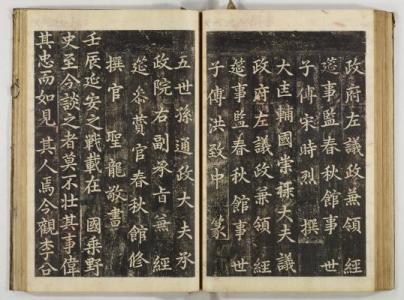 政府左議政兼領 經
筵事監春秋館事 世
子傅宋時烈 撰
大匡輔國崇祿大夫議
政府左議政兼領 經
筵事監春秋館事 世
子傅洪致中 篆
五世孫通政大夫承
政院右副承旨兼 經
筵參贊官春秋館修
撰官 聖龍敬書
壬辰延安之戰載在 國乘野
史至今談之者莫不壯其事偉
其忠而如見其人焉今觀李公